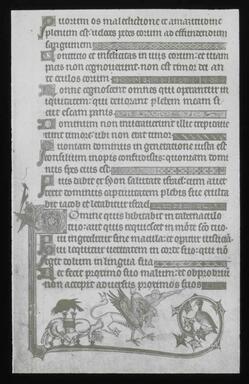 Quorum os maledictione et amaritudine
plenum est: veloces pedes eorum ad effundendum
sanguinem
Contritio et infelicitas in viis eorum: et viam
pacis non cognoverunt: non est timor dei an
te oculos eorum
Nonne cognoscent omnes qui operantur in
iquitatem: qui devorant plebem meam si
cut escam panis
Dominum non invocaverunt: illic trepidave
runt timore: ubi non erat timor
Quoniam dominus in generatione iusta est
consilium inopis confudistis: quoniam domi
nus spes eius est
Quis dabit ex syon salutare israel: cum aver
terit dominus captivitatem plebis sue exulta
bit iacob et letabitur israel
Domine quis habitabit in tabernaculo
tuo: aut quis requiescet in monte sancto tuo
Qui ingreditur sine macula: et operatur iusticiam
Qui loquitur veritatem in corde suo: qui non
egit dolum in lingua sua
Nec fecit proximo suo malum: et obprobrium
non accepit adversus proximos suos